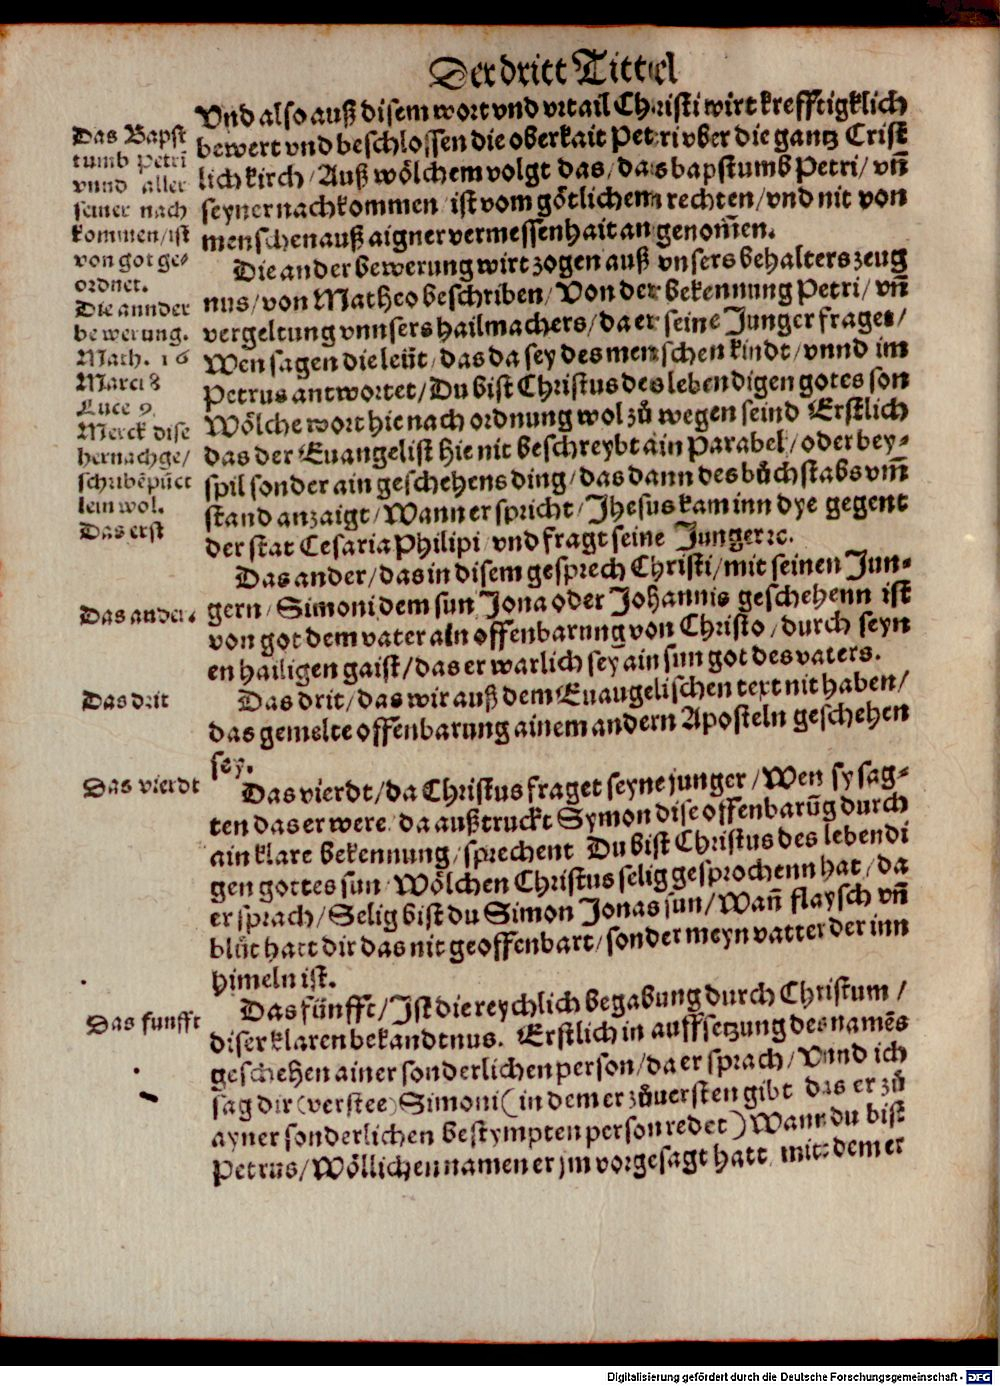 Der dritt Tittel
Vnd also auß disem wort vnd vrtail Christi wirt krefftigklich
bewert vnd beschlossen die oberkait Petri vber die gantz Crist
lich kirch / Auß wölchem volgt das / das bapstumb Petri / vñ
seyner nachkommen / ist vom götlichem rechten / vnd nit von
menschen auß aigner vermessenhait angenom̃en.
Das Bapst
tumb Petri
vnnd aller
seiner nach
kommen / ist
von got ge⸗
ordnet.
Die ander bewerung wirt zogen auß vnsers behalters zeug
nus / von Matheo beschriben / Von der bekennung Petri / vñ
vergeltung vnnsers hailmachers / da er seine Junger fraget /
Wen sagen die leüt / das da sey des menschen kindt / vnnd im
Petrus antwortet / Du bist Christus des lebendigen gotes son
Wölche wort hie nach ordnung wol zů wegen seind Erstlich
das der Euangelist hie nit beschreybt ain Parabel / oder bey⸗
spil sonder ain geschehens ding / das dann des bůchstabs vm̃
stand anzaigt / Wann er spricht / Jhesus kam inn dye gegent
der stat Cesaria Philipi vnd fragt seine Junger ꝛc.
Die annder
bewerung.
Math. 16
Marci 8
Luce 9.
Merck dise
hernachge/
schribẽ pũct
lein wol.
Das erst
Das ander / das in disem gesprech Christi / mit seinen Jun⸗
gern / Simoni dem sun Jona oder Johannis geschehenn ist
von got dem vater ain offenbarung von Christo / durch seyn
en hailigen gaist / das er warlich sey ain sun got des vaters.
Das ander.
Das drit / das wir auß dem Euangelischen text nit haben /
das gemelte offenbarung ainem andern Aposteln geschehen
sey.
Das drit
Das vierdt / da Christus fraget seyne junger / Wen sy sag⸗
ten das er were / da außtruckt Symon dise offenbarũg durch
ain klare bekennung / sprechent Du bist Christus des lebendi
gen gottes sun / Wölchen Christus selig gesprochenn hat / da
er sprach / Selig bist du Simon Jonas sun / Wañ flaysch vñ
blůt hatt dir das nit geoffenbart / sonder meyn vatter der inn
himeln ist.
Das vierdt
Das fünfft / Jst die reychlich begabung durch Christum /
diser klaren bekandtnus. Erstlich in auffsetzung des namẽs
geschehen ainer sonderlichen person / da er sprach / Vnnd ich
sag dir (verstee) Simoni (in dem er zůuersten gibt das er zů
ayner sonderlichen bestympten person redet) Wann du bist
Petrus / Wöllichen namen er jm vorgesagt hatt / mit dem er
Das funfft
Digitalisierung gefördert durch die Deutsche Forschungsgemeinschaft - DFG